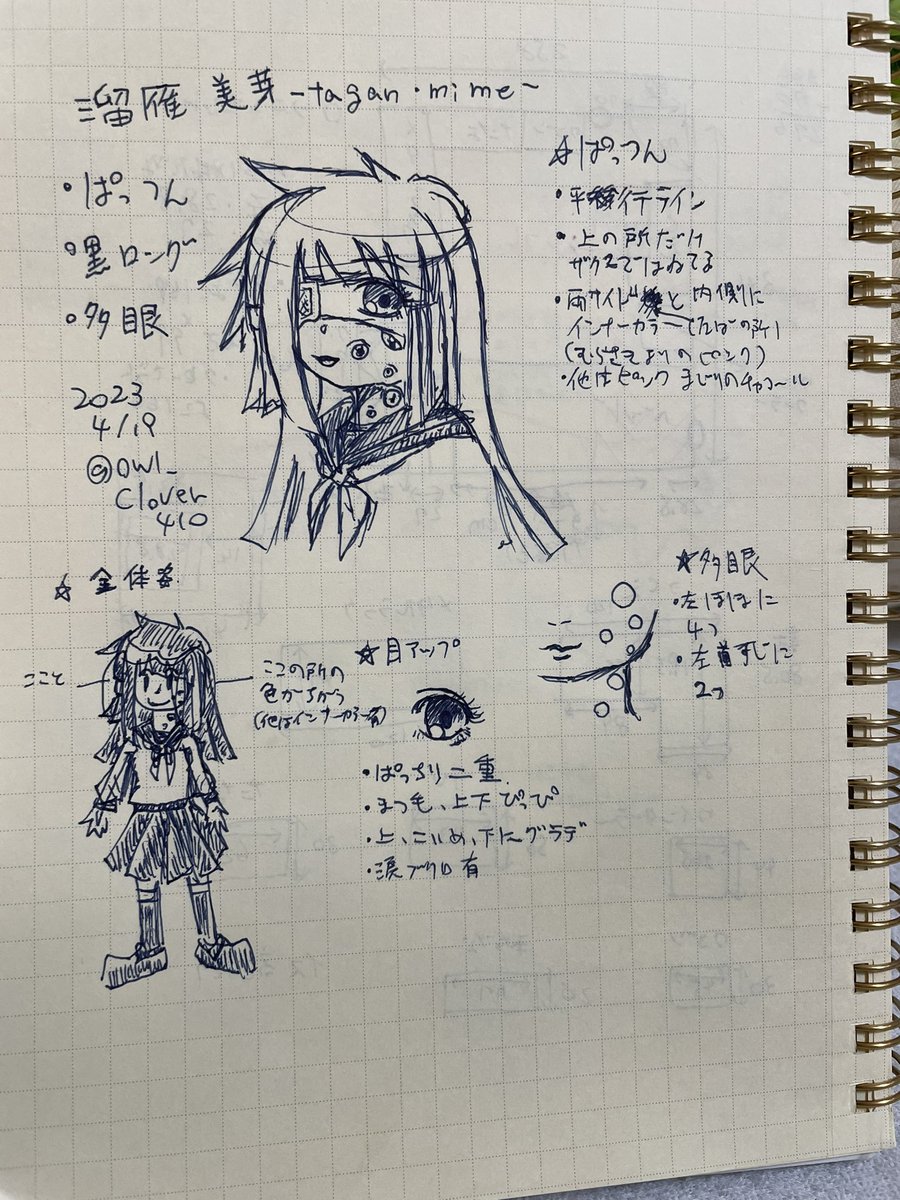 溜雁 美芽 -tagan・mime~
・ぱっつん
・黒ロング
・多眼
2023
4/19
@owl_
Clover
410
☆ぱっつん
・平行ライン
・上の所だけ
ではねてる
・両サイドと内側に
インナーカラー
(むらさきよりのピンク)
・他はピンクまじりのチャコール
☆全体図
ここと
ここの所の
色がちがう
(他はインナーカラー有)
☆目アップ
・ぱっちり二重
・まつ毛、上下びっぴ
・上、こいめ、下にグラデ
・涙ブクロ有
★多眼
・左ほほに
4つ
・左首すじに
2つ